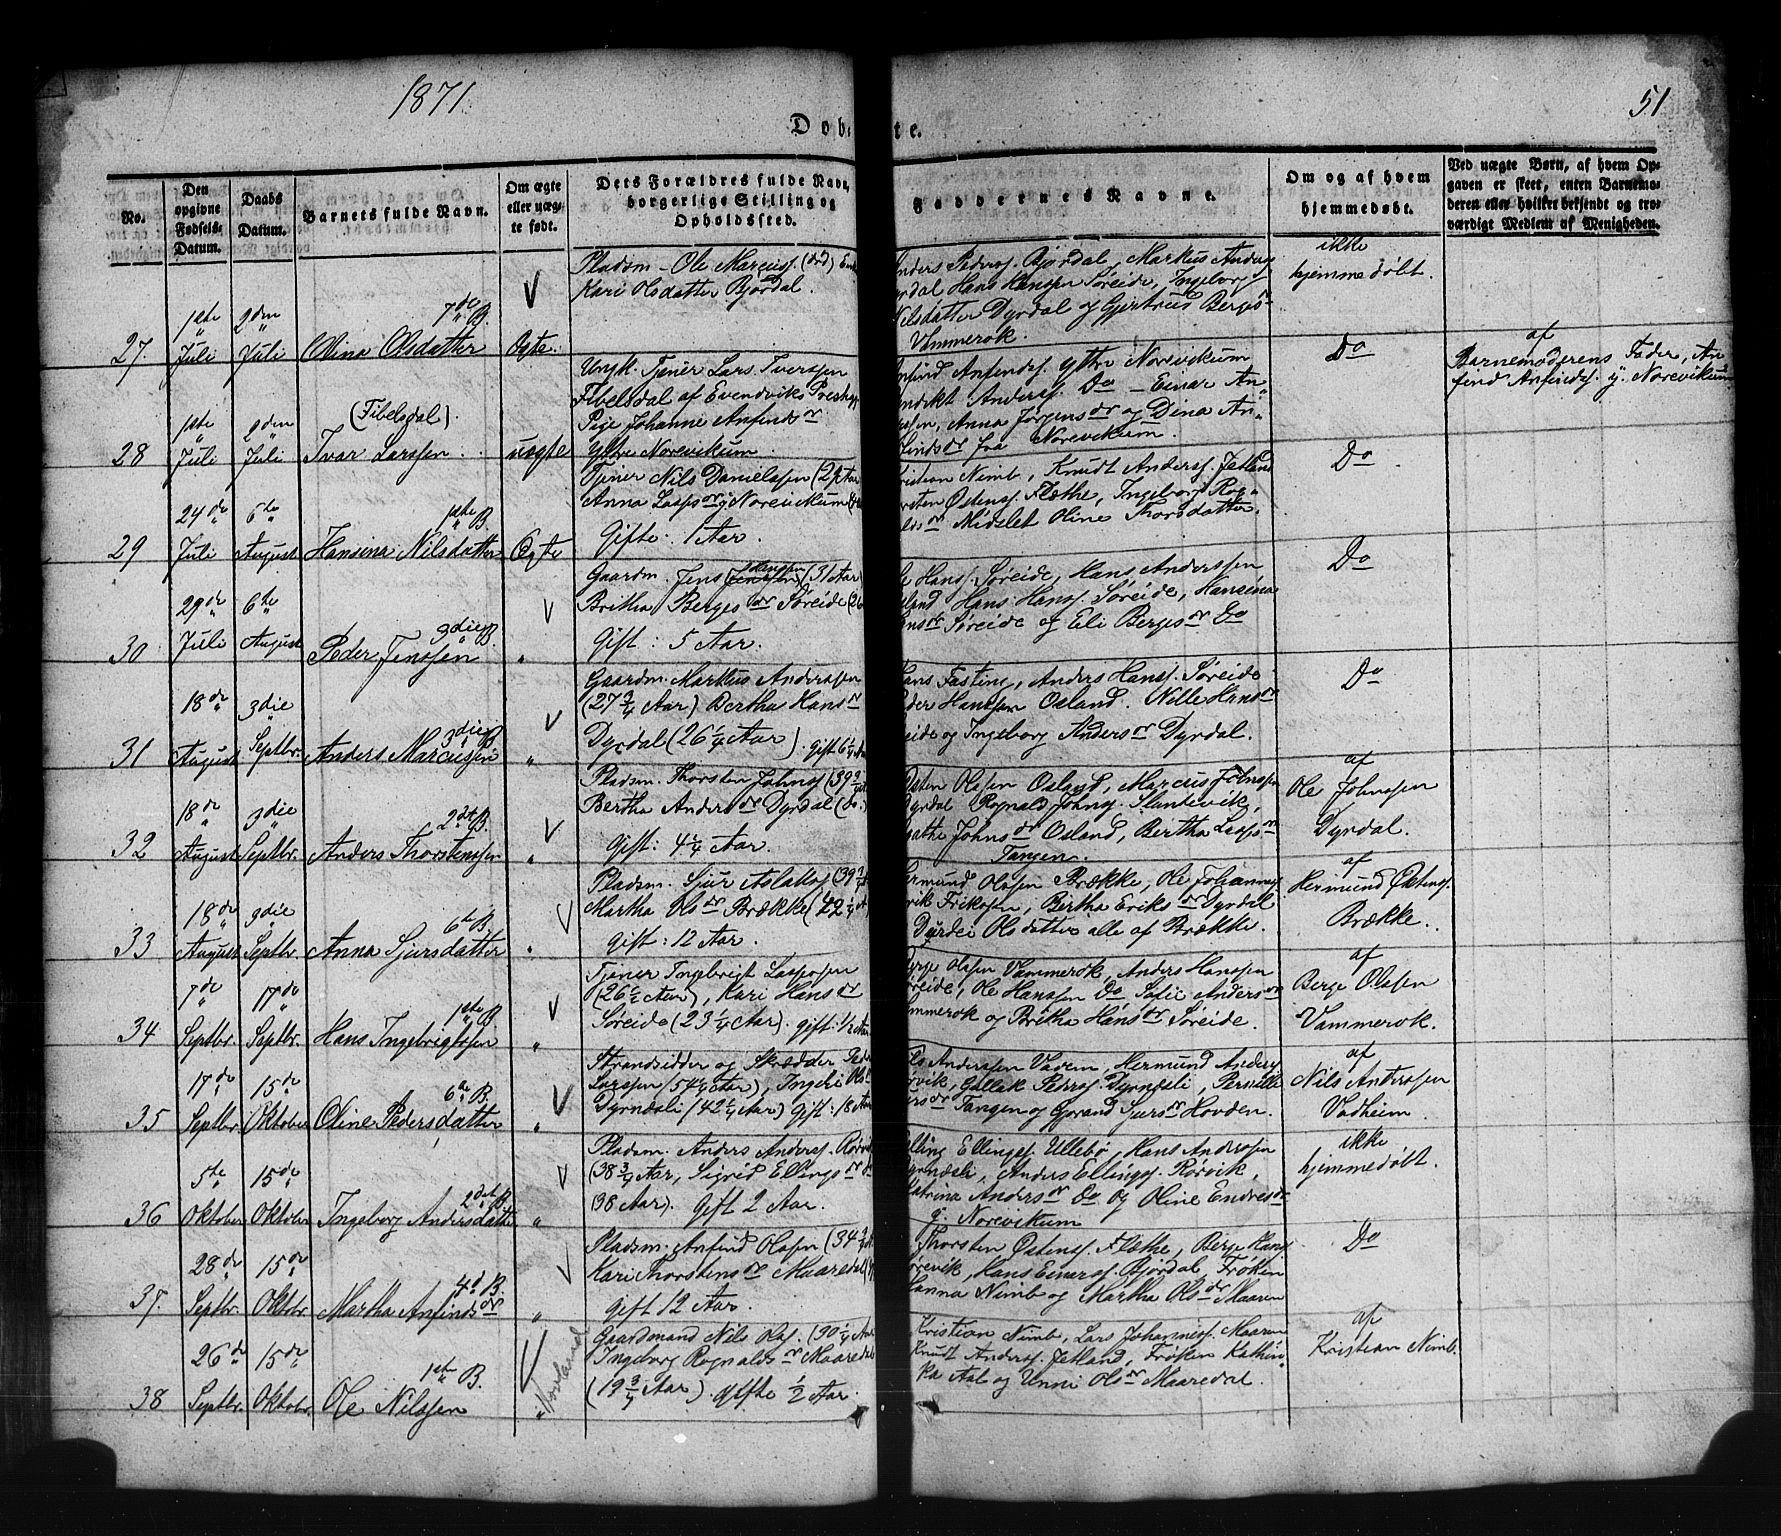 1871
51
Døbte.
No.
Den opgivne Fødsels-Datum.
Daabs Datum.
Barnets fulde Navn.
Om ægte eller uægte født.
Dets Forældres fulde Navn, borgerlige Stilling og Opholdssted.
Faddernes Navne.
Om og af hvem hjemmedøbt.
Ved uægte Børn, af hvem Opgaven er skeet, enten Barnemoderen eller hvilket bekjendt og troværdigt Medlem af Menigheden.
27.
1ste Juli
2den Juli
7de B.
Olina Olsdatter
Ægte.
Pladsm. Ole Marcuss. (død)
Kari Olsdatter Bjordal.
Anders Peders. Bjordal, Markus Anders
Dyrdal Hans Hansen Søreide, Ingeborg
Nilsdatter Dyrdal og Gjertrud Berges
Vammerok.
ikke
hjemmedøbt.
28
1ste Juli
2den Juli
(Fibelsdal).
Ivar Larssen
uægte
Ungk. Tjener Lars Iverssen
Fibelsdal af Evendviks Prestegj
Pige Johanne Anfindsdr
Yttre Norevikum.
Anfind Anfindss. yttre Norevikum
Benedikt Anderss. Do - Einar An-
Anna Jørgensdr og Dina An-
findsdr fra Norevikum.
Do
af
Barnemoderens Fader, An
find Anfindss. y. Norevikum
29
24de Juli
6te August
1ste B.
Hansina Nilsdatter
Ægte
Tjener Nils Danielssen (29 Aar
Anna Lassesdr y Norevikum
Gifte. 1 Aar.
Kristian Nimb, Knudt Anderss. Jetland
Torsten Østenss. Flæthe, Ingeborg Rog-
Midelet Oline Thorsdatter.
Do
30
29de Juli
6te August
3die B.
Peder Jenssen
"
Gaardm. Jens Hanssen (31 Aar
Britha Bergesdr Søreide (26
Gift: 5 Aar.
Ole Hanss. Søreide, Hans Anderssen
Osland Hans Hanss. Søreide, Hansina
Hansdr Søreide og Eli Bergesdr Do
Do
31
18de August
3die Septbr.
3die B
Anders Marcussen
"
Gaardm. Markus Anderssen
(27 3/4 Aar) Bertha Hansdr
Dyrdal (26 1/4 Aar). gift 6 1/4 Aar
Hans Fasting, Anders Hanss. Søreide
Peder Hanssen Osland. Nille Hansdr
Søreide og Ingeborg Andersdr Dyrdal.
Do
32
18de August
3die Septbr.
2det B.
Anders Thorstenssen
"
Pladsm. Thorsten Johns. (39 3/4
Bertha Andersdr Dyrdal (do.)
Gift: 4 1/4 Aar.
Østen Olssen Osland, Marcus Johnssen
Dyrdal Rognald Johns. Slantevik,
Agathe Johnsdr Osland, Bertha Lassesdr
Tangen.
af
Ole Johnssen
Dyrdal.
33
18de August
3die Septbr.
6te B.
Anna Sjursdatter
"
Pladsm. Sjur Aslaks. (39
Martha Olsdr Brække (42 1/4
gift: 12 Aar.
Hermund Olssen Brække, Ole Johannes.
Erikssen, Bertha Eriksdr Dyrdal
Dyrdei Olsdatter alle af Brække.
af
Hermund Østens.
Brække.
34
7de Septbr.
17de Septbr.
1ste B.
Hans Ingebrigtssen
"
Tjener Ingebrigt Lassessen
(26 1/2 Aar), Kari Hansdr
Søreide (23 1/4 Aar). gift: 1/2 Aar
Berge Olssen Vammerok, Anders Hanssen
Søreide, Ole Hanssen Do, Sofie Andersdr
Vammerok og Britha Hansdr Søreide.
af
Berge Olssen
Vammerok.
35
17de Septbr.
15de Oktober
6te B.
Oline Pedersdatter
"
Strandsidder og Skrædder Peder
Larssen (54 1/4 Aar), Ingeri Ols
Dyrndali (42 1/4 Aar) Gift: 18 Aar
Nils Anderssen Vadem, Hermund Anders
Rørvik, Gullik Pederss. Dyrndali, Pernille
Tangen og Gørand Sjursdr Hovden.
af
Nils Anderssen
Vadheim.
36
5te Oktober
15de Oktober
2det B.
Ingeborg Andersdatter
"
Pladsm. Anders Anderss. Rørvik
(38 3/4 Aar, Sigrid Ellingsdr
(38 Aar). Gift 2 Aar.
Elling Ellings. Ullebø, Hans Anderssen
Dyrndali, Anders Ellings. Rørvik,
Katrina Andersdr Do og Oline Endresdr
y. Norevikum
ikke
hjemmedøbt.
37.
28de Septbr.
15de Oktobr.
4de B.
Martha Anfindsdr
"
Pladsm. Anfind Olssen (34
Kari Thorstensdr Maaredal
Gift 12 Aar.
Thorsten Østenss. Flæthe, Berge Hans.
Rørevik, Hans Einers. Bjordal, Frøken
Hanna Nimb og Martha Olsdr Maaren
Do
38
26de Septbr.
15de Oktobr.
1ste B.
Ole Nilssen
"
Gaardmand Nils Ols. (30 1/4 Aar
Ingeborg Rognaldsdr Maaredal
(19 3/4 Aar) gifte 1/2 Aar.
Kristian Nimb, Lars Johanness. Maaren
Knudt Anderss. Jetland, Frøken Kathin-
ka Aal og Unni Olsdr Maaredal.
af
Kristian Nimb.